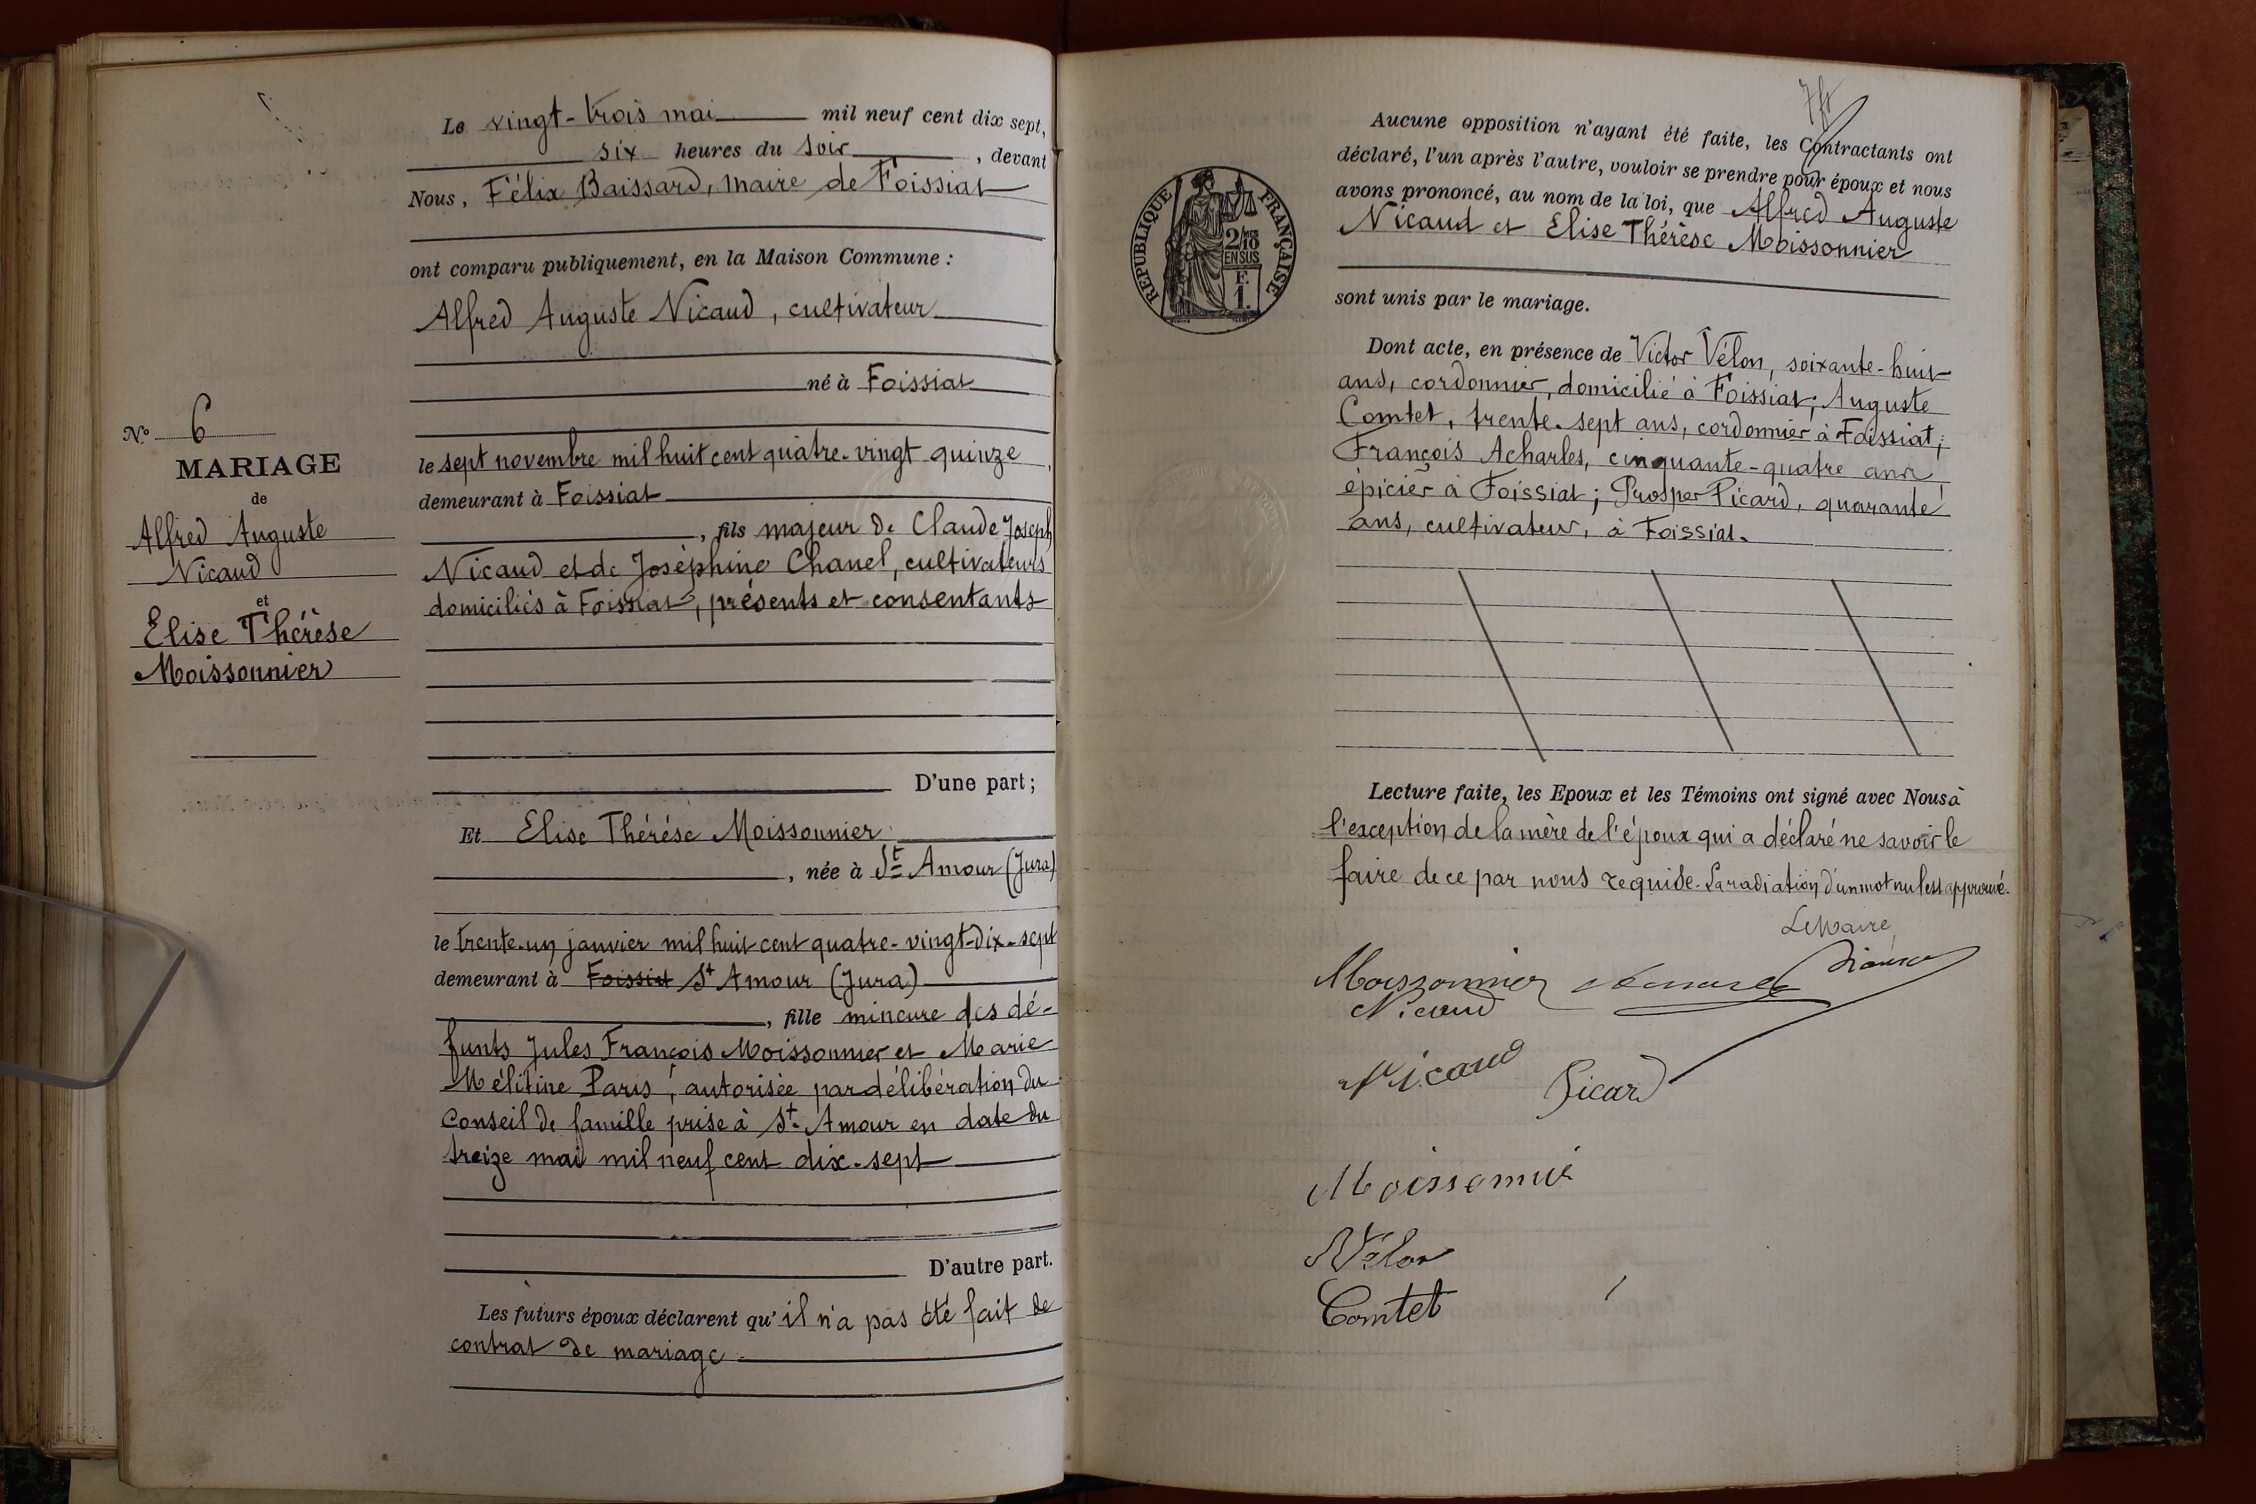 Le vingt-trois mai mil neuf cent dix sept,
six heures du soir, devant
Nous, Félix Baissard, maire de Foissiat
ont comparu publiquement, en la Maison Commune :
Alfred Auguste Nicaud, cultivateur
né à Foissiat
le sept novembre mil huit cent quatre-vingt quinze,
demeurant à Foissiat
, fils majeur de Claude Joseph
Nicaud et de Joséphine Chanel, cultivateurs
domiciliés à Foissiat, présents et consentants
D'une part ;
Et Elise Thérése Moissonnier
, née à St Amour (Jura)
le trente-un janvier mil huit cent quatre-vingt-dix-sept
demeurant à Foissiat St Amour (Jura)
, fille mineure des dé-
funts Jules François Moissonnier et Marie
Mélitine Paris, autorisée par délibération du
Conseil de famille prise à St-Amour en date du
treize mai mil neuf cent dix-sept
D'autre part.
Les futurs époux déclarent qu'il n'a pas été fait de
contrat de mariage
No 6
MARIAGE
de
Alfred Auguste
Nicaud
et
Elise Thérèse
Moissonnier
Aucune opposition n'ayant été faite, les Contractants ont
déclaré, l'un après l'autre, vouloir se prendre pour époux et nous
avons prononcé, au nom de la loi, que Alfred Auguste
Nicaud et Elise Thérèse Moissonnier
sont unis par le mariage.
RÉPUBLIQUE FRANÇAISE
2/10
EN SUS
F.
1.
Dont acte, en présence de Victor Vélon, soixante-huit
ans, cordonnier, domicilié à Foissiat; Auguste
Comtet, trente-sept ans, cordonnier à Foissiat;
François Acharles, cinquante-quatre ans
épicier à Foissiat; Prosper Picard, quarante
ans, cultivateur, à Foissiat.
Lecture faite, les Epoux et les Témoins ont signé avec Nous à
l'exception de la mère de l'époux qui a déclaré ne savoir le
faire de ce par nous requise. La radiation d'un mot nul est approuvé.
Le Maire,
Moissonnier
Nicaud
Nicaud
Picard
Moissonnié
Vélon
Comtet